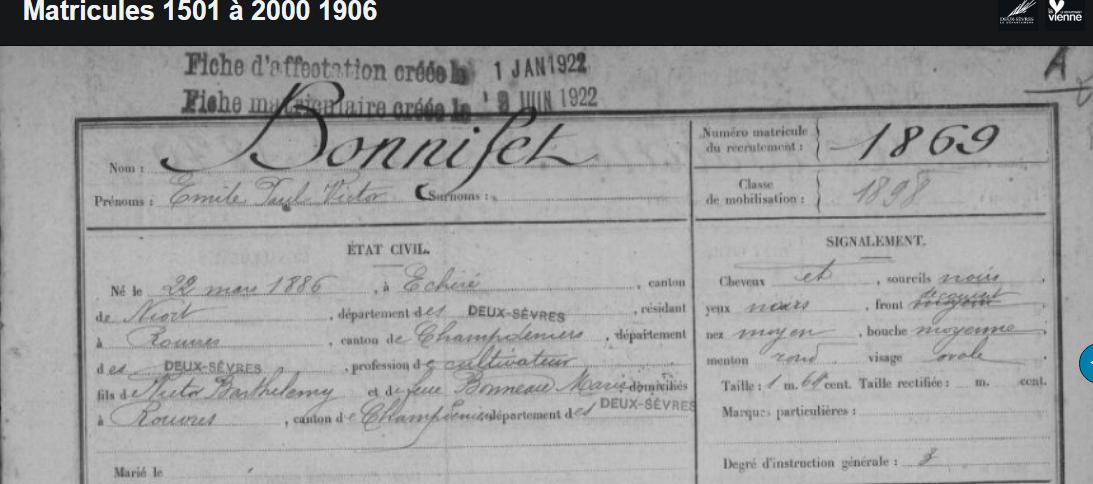 Matricules 1501 à 2000 1906
DEUX-SÈVRES
vienne
Fiche d'affectation créée le 1 JAN 1922
Fiche matriculaire créée le JUIN 1922
A
Nom : Bonnifet
Numéro matricule du recrutement : 1869
Prénoms : Emile Paul Victor Surnoms :
Classe de mobilisation : 1898
ÉTAT CIVIL.
Né le 22 mars 1886, à Echiré, canton
de Niort, département des DEUX-SÈVRES, résidant
à Rouvres, canton de Champdeniers, département
des DEUX-SÈVRES, profession de cultivateur
fils de Victor Barthelemy et de feue Bonneau Marie domiciliés
à Rouvres, canton de Champdeniers département des DEUX-SÈVRES
Marié le
SIGNALEMENT.
Cheveux et, sourcils noirs,
yeux noirs, front
nez moyen, bouche moyenne,
menton rond visage ovale
Taille : 1 m. cent. Taille rectifiée : m. cent.
Marques particulières :
Degré d'instruction générale : 3